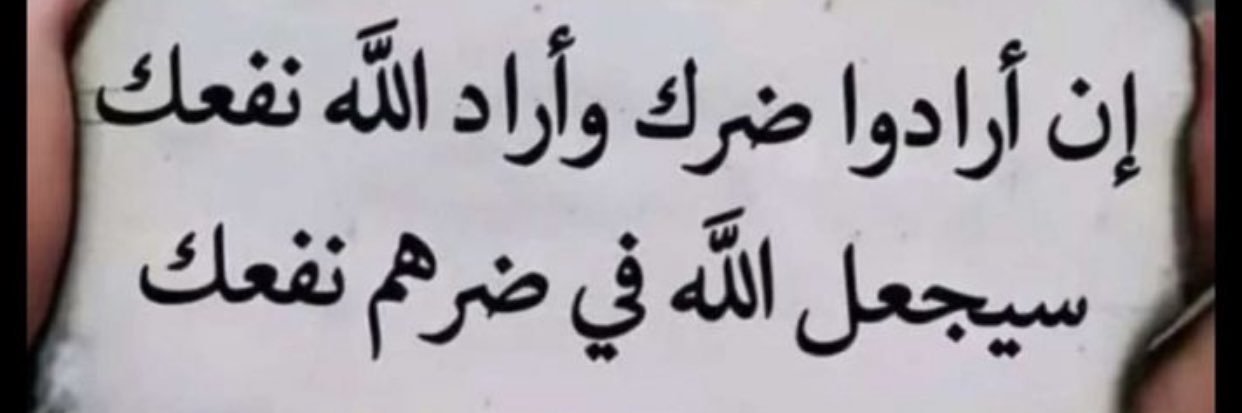 إن أرادوا ضرك وأراد اللَّه نفعك
سيجعل اللَّه في ضرهم نفعك